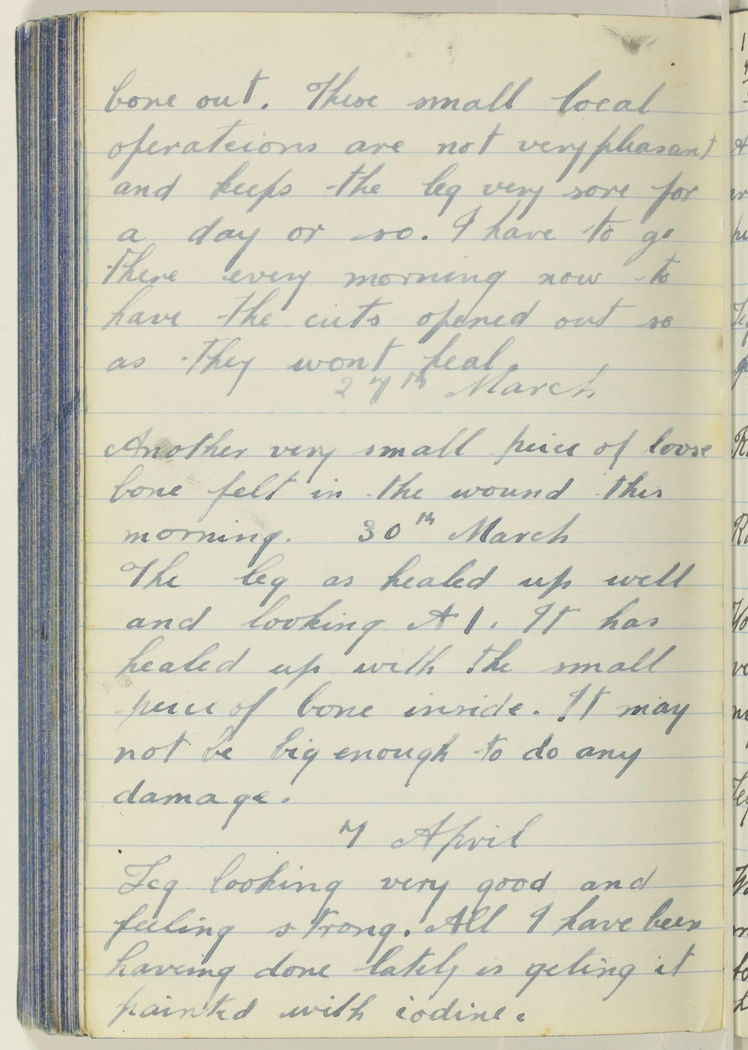 bone out. These small local
operateions are not very pleasant
and keeps the leg very sore for
a day or so. I have to go
there every morning now to
have the cuts opened out so
as they wont heal.
27th March
Another very small peice of loose
bone felt in the wound this
morning. 30th March
The leg as healed up well
and looking A1. It has
healed up with the small
peice of bone inside. It may
not be big enough to do any
damage.
7 April
Leg looking very good and
feeling strong. All I have been
having done lately is geting it
painted with iodine.